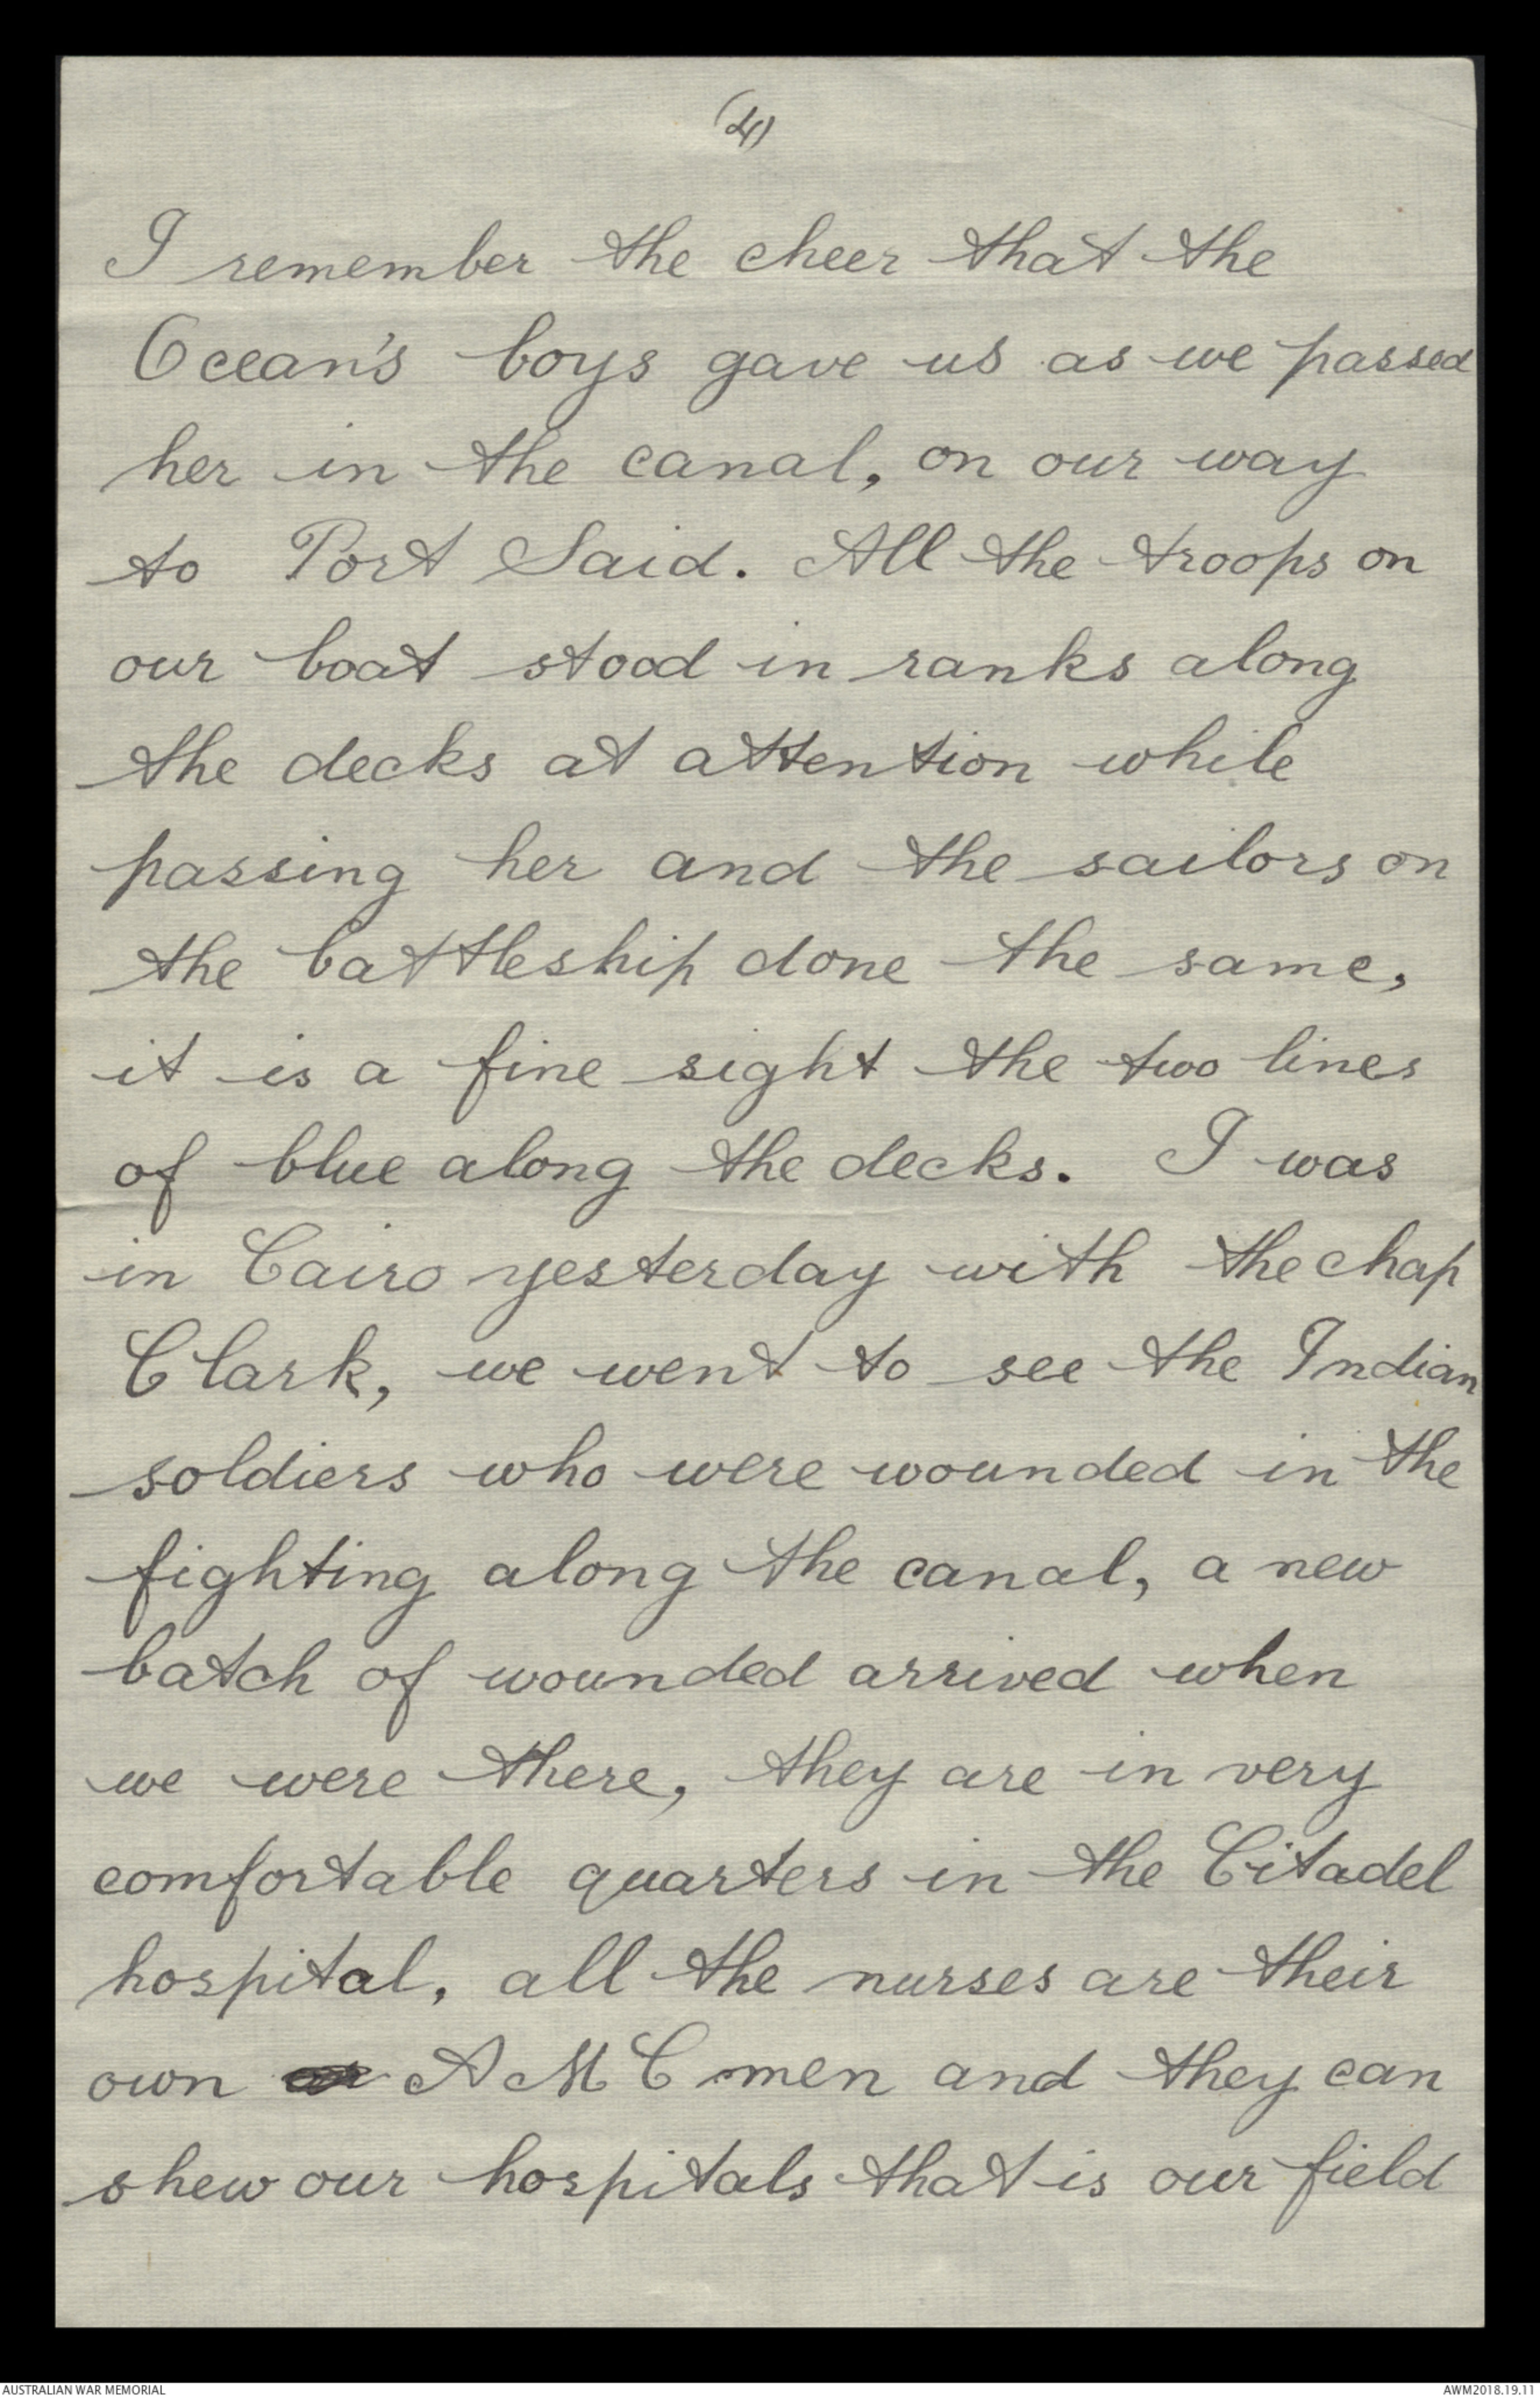 (4)
I remember the cheer that the
Ocean's boys gave us as we passed
her in the canal, on our way
to Port Said. All the troops on
our boat stood in ranks along
the decks at attention while
passing her and the sailors on
the battleship done the same,
it is a fine sight the two lines
of blue along the decks. I was
in Cairo yesterday with the chap
Clark, we went to see the Indian
soldiers who were wounded in the
fighting along the canal, a new
batch of wounded arrived when
we were there, they are in very
comfortable quarters in the Citadel
hospital, all the nurses are their
own A M C men and they can
shew our hospitals that is our field
AUSTRALIAN WAR MEMORIAL
AWM2018.19.11